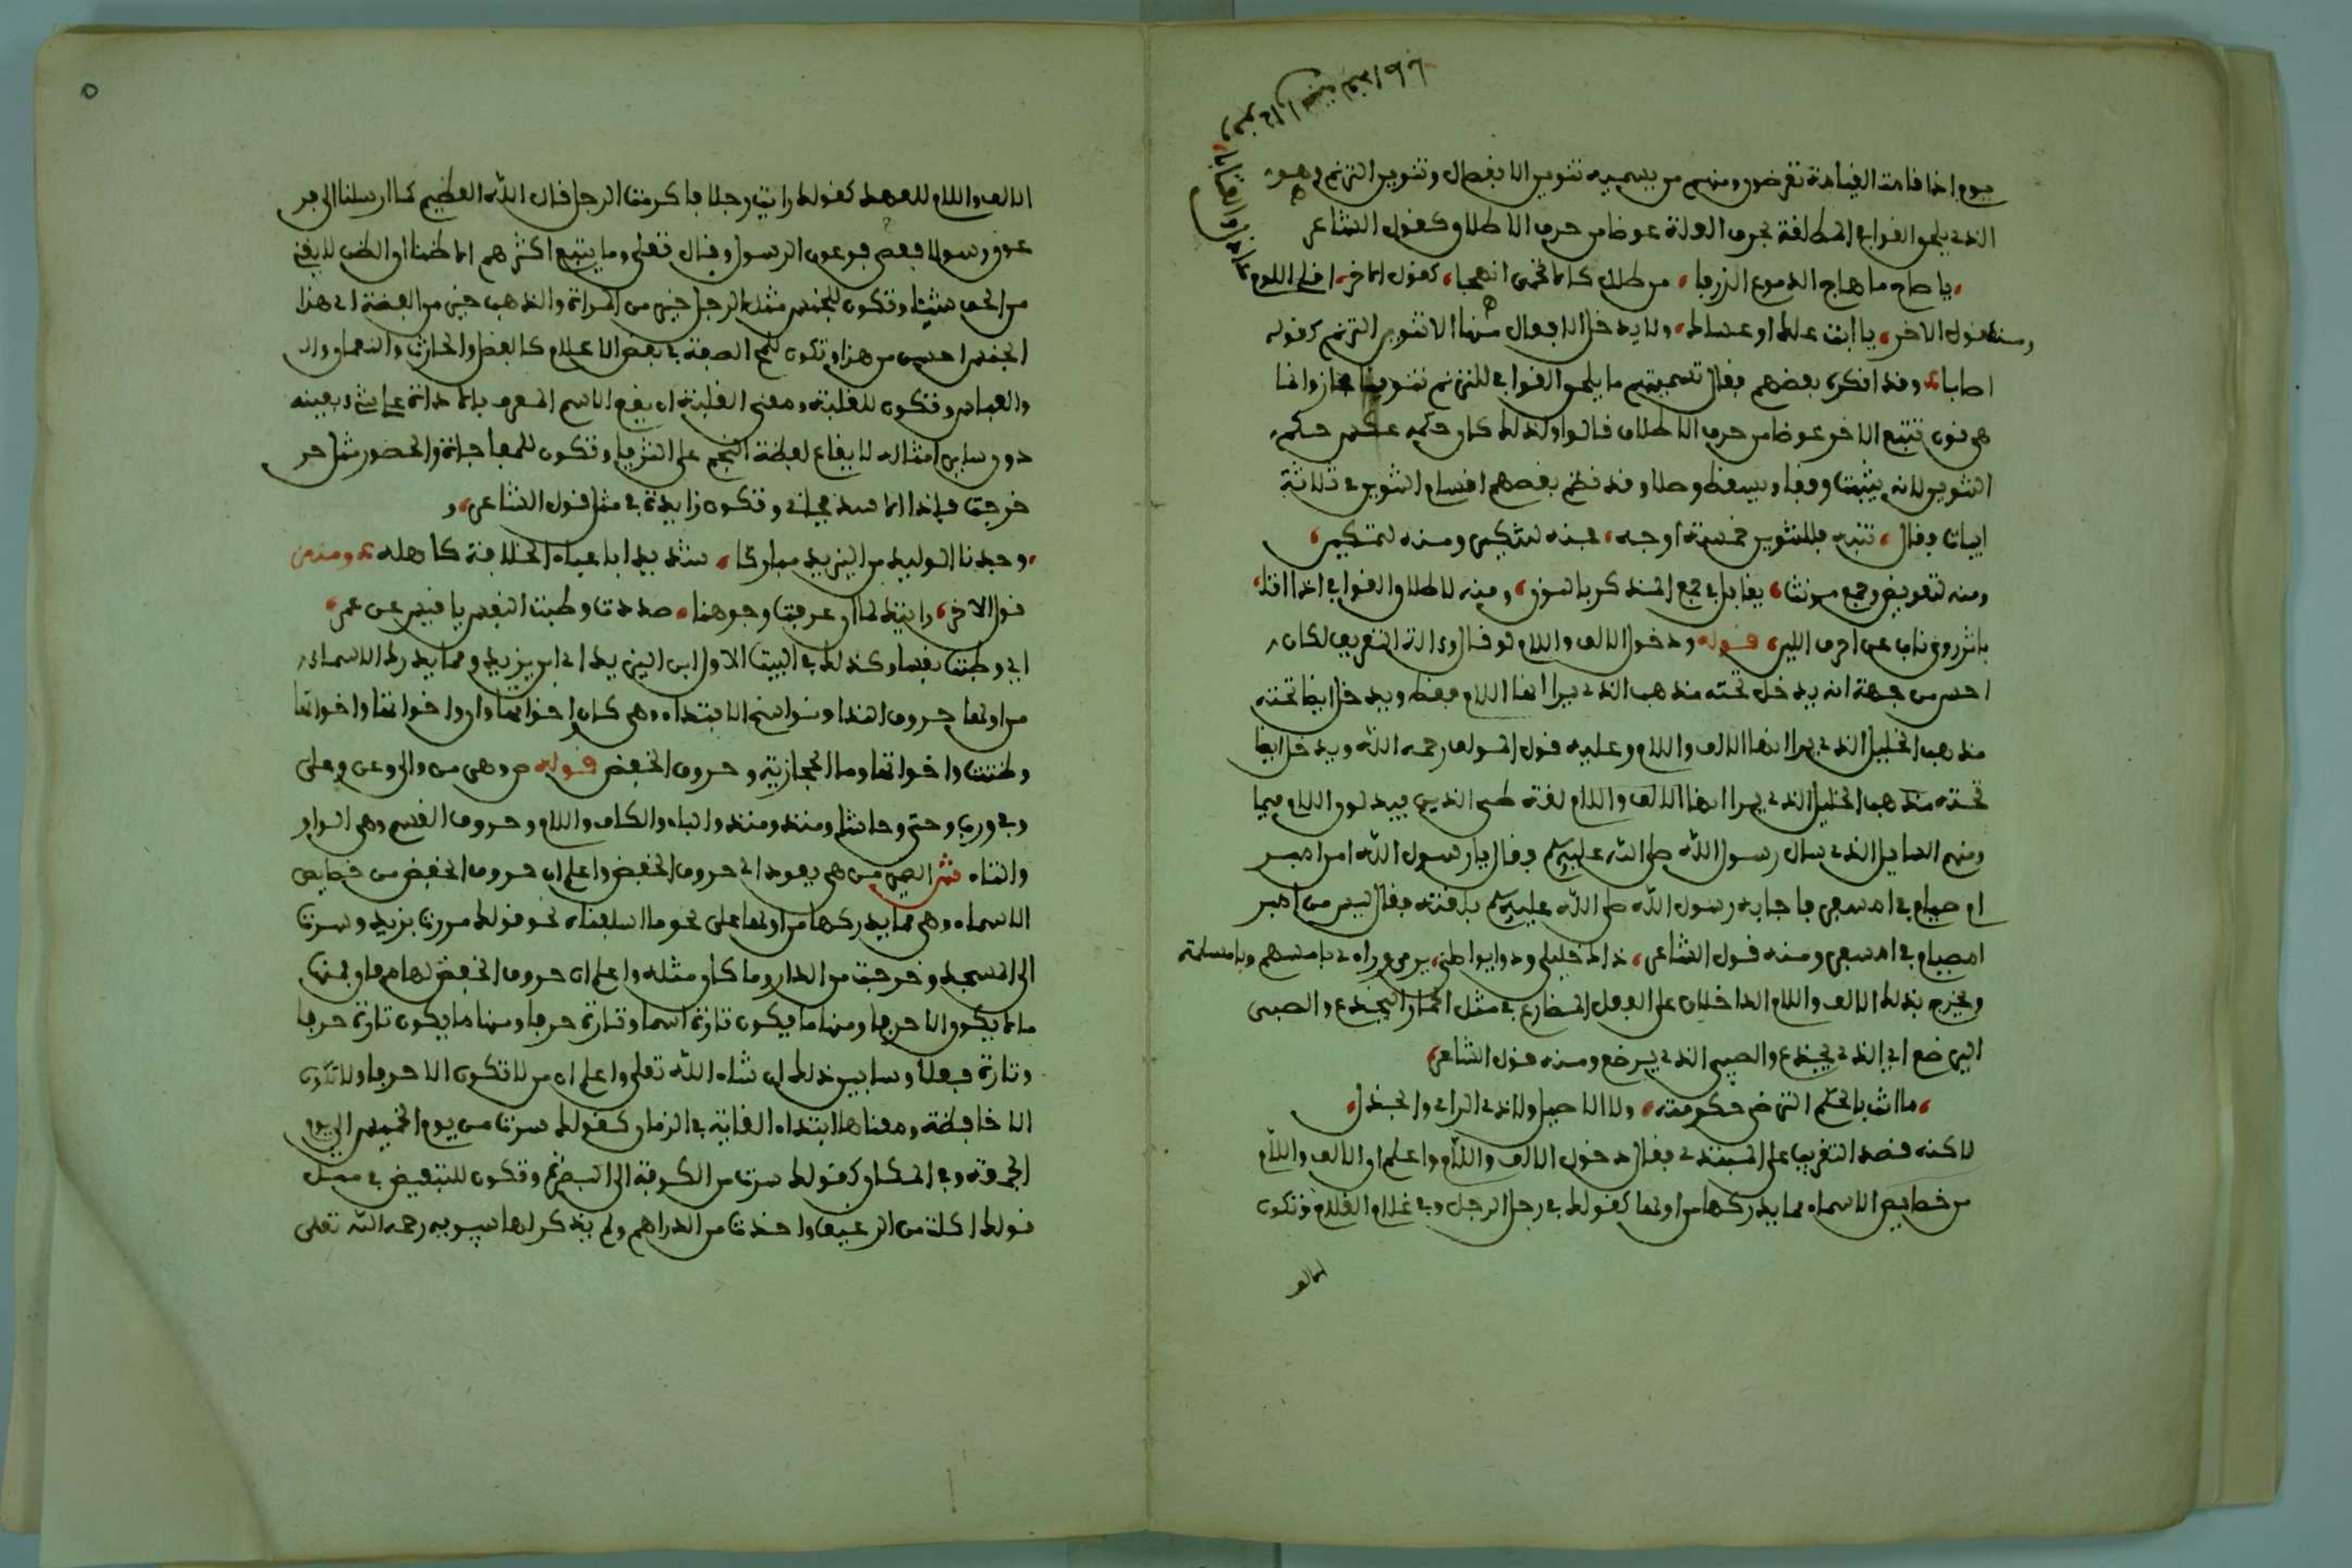 يوم اذا قامت القيامة تعرضون ومنهم من يسميه تنوين الانفصال وتنوين الترنم وهو
الذي يلحق القوافي المطلقة بحرف العلة عوضا من حرف الاطلاق كقول الشاعر
يا صاح ما هاج الدموع الذرفا من طلل كالاتحمي انهجا كقول الاخر اقلي اللوم
عاذل والعتابا
ومنه قول الاخر يا ابتا علك او عساك ولا يدخل الافعال منها الا تنوين الترنم كقوله
اصابا وقد انكره بعضهم فقال تسميتهم ما يلحق القوافي للترنم تنوينا مجاز وانما
هي نون تتبع الاخر عوضا من حرف الاطلاق قالوا ولذلك كان حكمه عكس حكم
التنوين لانه يثبت وقفا ويسقط وصلا وقد نظم بعضهم اقسام التنوين في ثلاثة
ابيات فقال تنبه فللتنوين خمسة اوجه فمنه لتنكير ومنه لتمكين
ومنه لتعويض وجمع مونث يقابل في جمع المذكر بالنون ومنه لاطلاق القوافي اذا اتا
باثر روي ناب عن احرف اللين قوله ودخول الالف واللام لو قال واداة التعريف لكان
احسن من جهة انه يدخل تحته مذهب الذي يرا انها اللام فقط ويدخل ايضا تحته
مذهب الخليل الذي يرا انها الالف واللام وعليه قول المولف رحمه الله ويدخل ايضا
تحته مذهب الخليل الذي يرا انها الالف واللام لغة طي الذين يبدلون اللام ميما
ومنهم السايل الذي سال رسول الله صلى الله عليه وسلم فقال يا رسول الله امن امبر
ام صيام في امسفر فاجابه رسول الله صلى الله عليه وسلم بلغته فقال ليس من امبر
امصيام في امسفر ومنه قول الشاعر ذاك خليلي وذو يواصلني يرمي وراءي بامسهم وبامسلمة
ويخرج بذلك الالف واللام الداخلان على الفعل المضارع في مثل الحمار اليجدع والصبي
اليرضع اي الذي يجدع والصبي الذي يرضع ومنه قول الشاعر
ما انت بالحكم الترضى حكومته ولا الاصيل ولا ذي الراي والجدل
لاكنه قصد التقريب على المبتدي فقال دخول الالف واللام واعلم ان الالف واللام
من خصايص الاسماء مما يدركها من اولها كقولك في رجل الرجل وفي غلام الغلام وتكون
الالف
٥
الالف واللام للعهد كقولك رايت رجلا فاكرمت الرجل قال الله العظيم كما ارسلنا الى فر
عون رسولا فعصى فرعون الرسول وقال تعلى وما يتبع اكثرهم الا ظنا ان الظن لا يغني
من الحق شيئا وتكون للجنس مثل الرجل خير من المراة والذهب خير من الفضة اي هذا
الجنس احسن من هذا وتكون للمح الصفة في بعض الاعلام كالفضل والحارث والنعمان وال
والعباس وتكون للغلبة ومعنى الغلبة ان يقع الاسم المعرف بالاداة على شيء بعينه
دون ساير امثاله لايقاع لفظة النجم على الثريا وتكون للمفاجاة والحضور مثل خر
خرجت فاذا الاسد في اني وتكون زايدة في مثل قول الشاعر و
وجدنا الوليد بن اليزيد مباركا شديدا باعباء الخلافة كاهله ومنه
قول الاخر رايتك لما ان عرفت وجوهنا صددت وطبت النفس يا قيس عن عمر
اي وطبت نفسا وكذلك في البيت الاول ابن اليزيد اي ابن يزيد ومما يدرك الاسماء
من اولها حروف النداء ونواسخ الابتداء وهي كان واخواتها وان واخواتها
وظننت واخواتها وما الحجازية وحروف الخفض قوله ص وهي من والى وعن وعلى
وفي ورب وحتى وحاشا ومنذ ومنذ والباء والكاف واللام وحروف القسم وهي الواو
والتاء ش الضمير من هي يعود الى حروف الخفض واعلم ان حروف الخفض من خصايص
الاسماء وهي مما يدركها من اولها على نحو ما اسلفناه نحو قولك مررت بزيد وسرت
الى المسجد وخرجت من الدار وما كان مثله واعلم ان حروف الخفض لها معان فمنها
ما لا يكون الا حرفا ومنها ما يكون تارة اسما وتارة حرفا ومنها ما يكون تارة حرفا
وتارة فعلا وسابين ذلك ان شاء الله تعلى واعلم ان من لا تكون الا حرفا ولا تكون
الا خافضة ومعناها ابتداء الغاية في الزمان كقولك سرت من يوم الخميس الى يوم
الجمعة وفي المكان كقولك سرت من الكوفة الى البصرة وتكون للتبعيض في مثل
قولك اكلت من الرغيف واخذت من الدراهم ولم يذكر لها سيبويه رحمه الله تعلى